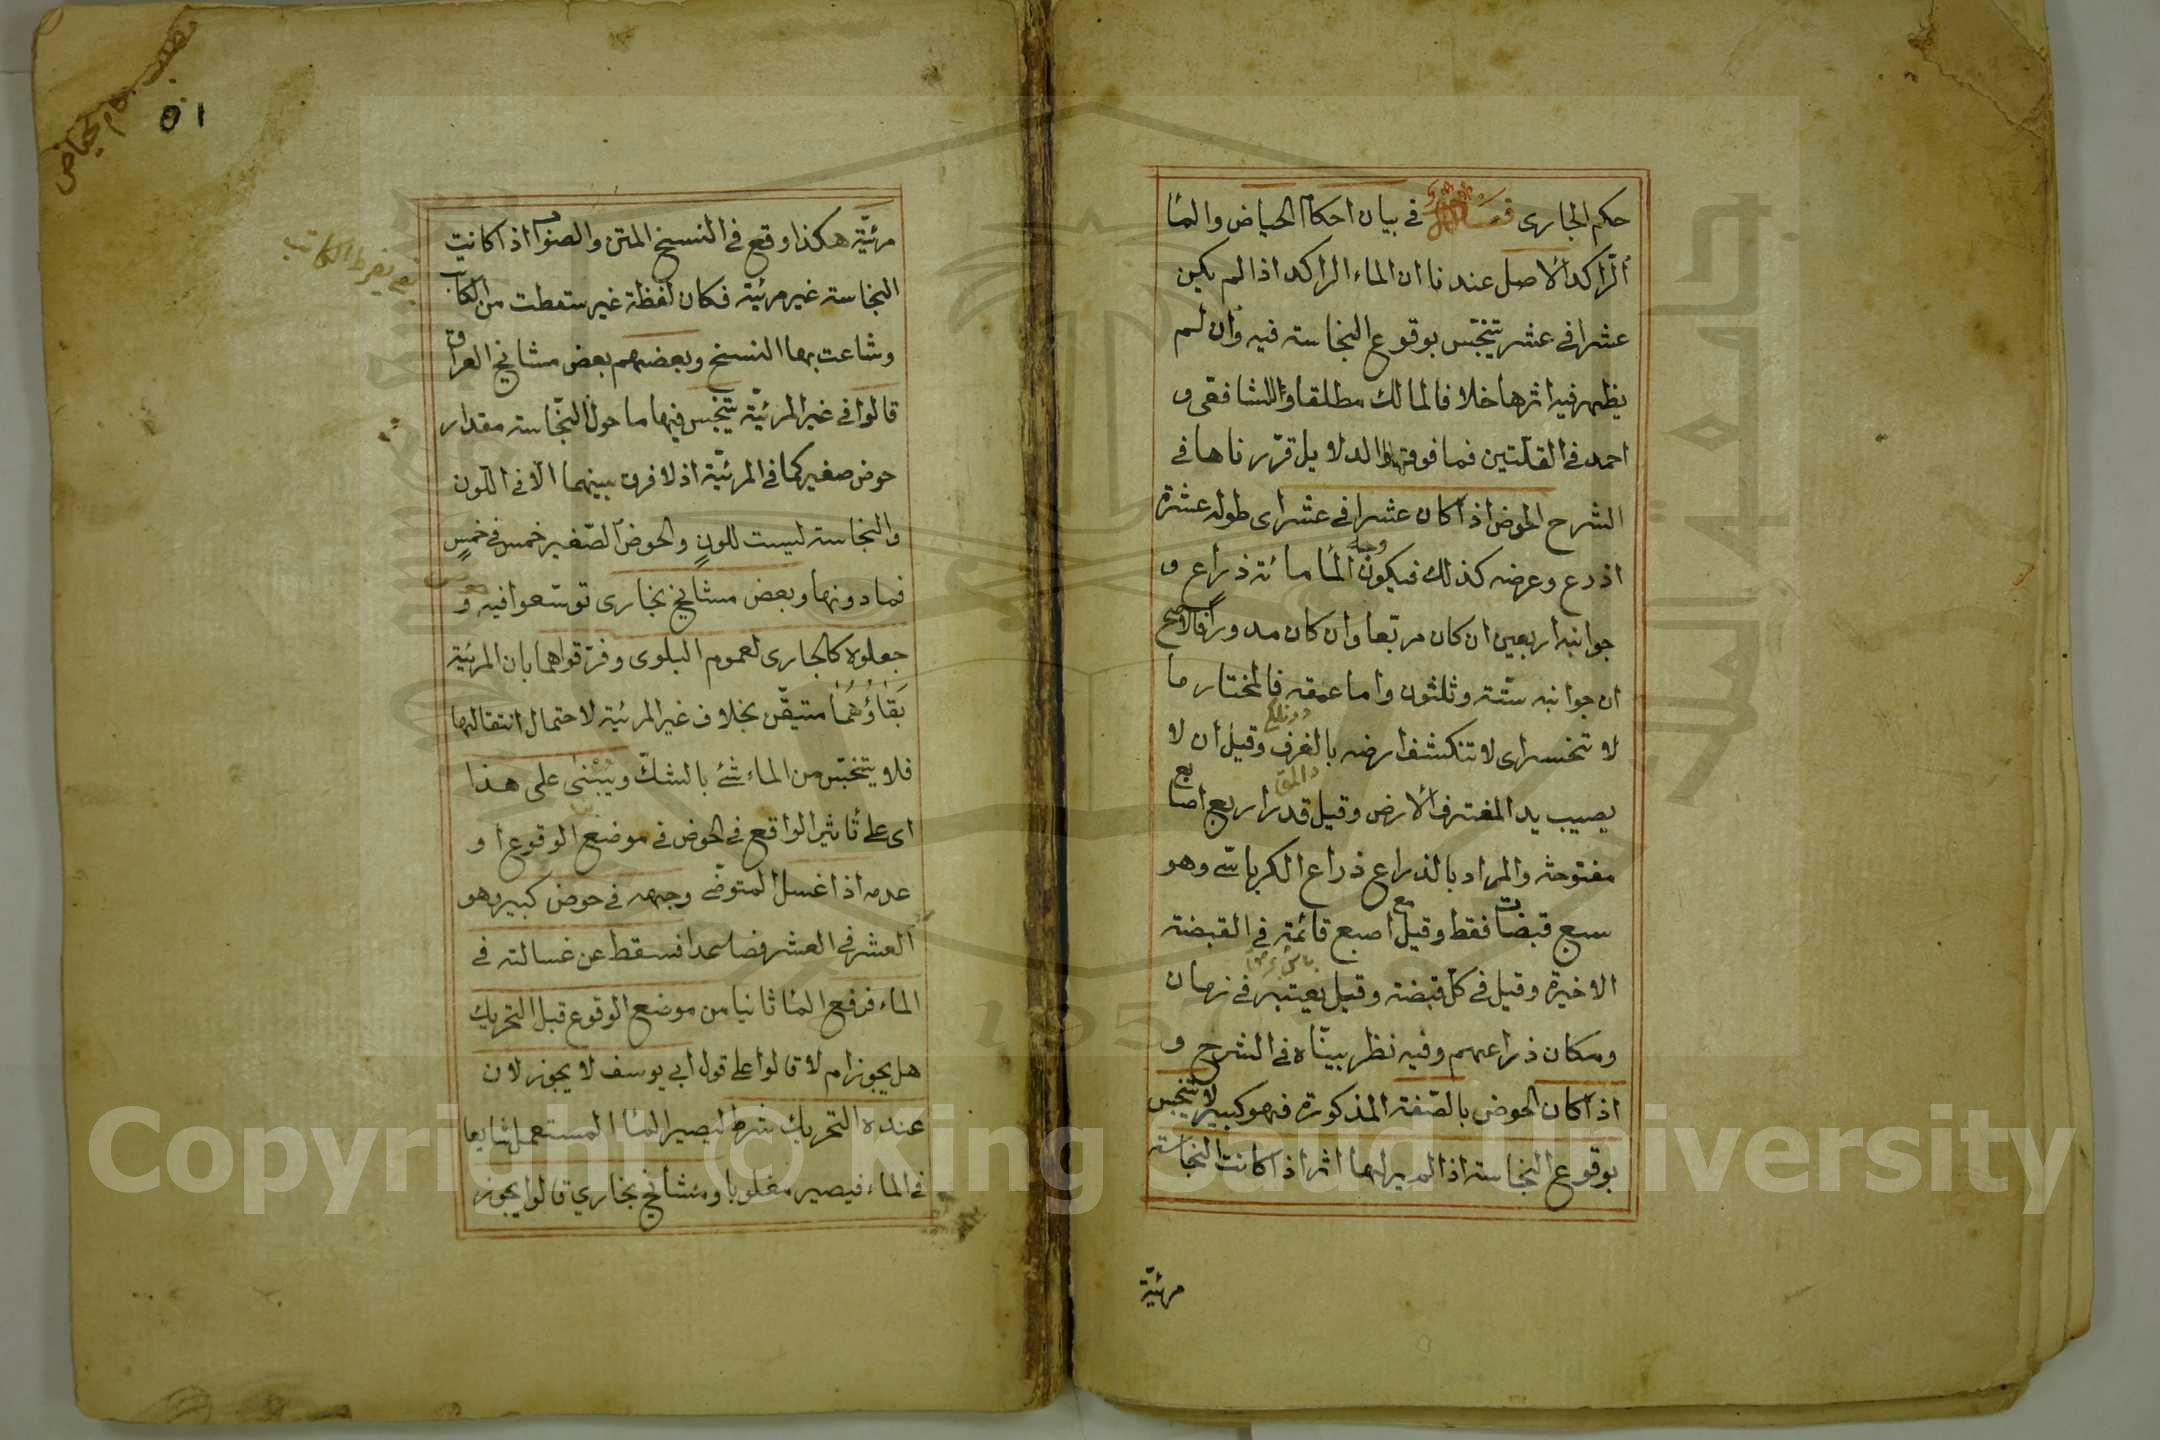 حكم الجارى فصل في بيان احكام الحياض والماء
الراكد الاصل عندنا ان الماء الراكد اذا لم يكن
عشرا في عشر يتنجس بوقوع النجاسة فيه وان لم
يظهر فيه اثرها خلافا لمالك مطلقا وللشافعى و
احمد في القلتين فما فوقها والدلايل قررناها في
الشرح الحوض اذا كان عشرا في عشر اى طوله عشرة
اذرع وعرضه كذلك فيكون وجه الماء مائة ذراع و
جوانبه اربعين ان كان مربعا وان كان مدورا فالاصح
ان جوانبه ستة وثلثون واما عمقه فالمختار ما
لا تنحسر اى لا تنكشف ارضه بالغرف وقيل ان لا
يصيب يد المغترف الارض وقيل قدر اربع اصابع
مفتوحة والمراد بالذراع ذراع الكرباس وهو
سبع قبضات فقط وقيل مع اصبع قائمة في القبضة
الاخيرة وقيل في كل قبضة وقيل يعتبر في زمان
ومكان ذراعهم وفيه نظر بيناه في الشرح و
اذا كان الحوض بالصفة المذكورة فهو كبير لا يتنجس
بوقوع النجاسة اذا لم ير لها اثر اذا كانت النجاسة
مرئية
مطلب
٥١
مرئية هكذا وقع في النسخ المتن والصواب اذا كانت
النجاسة غير مرئية فكان لفظة غير سقطت من الكاتب
وشاعت بها النسخ وبعضهم بعض مشايخ العراق
قالوا في غير المرئية يتنجس فيها ما حول النجاسة مقدار
حوض صغير كما في المرئية اذ لا فرق بينهما الا في اللون
والنجاسة ليست للون والحوض الصغير خمس في خمس
فما دونها وبعض مشايخ بخارى توسعوا فيه و
جعلوه كالجارى لعموم البلوى وفرقوا هما بان المرئية
بقاؤهما متيقن بخلاف غير المرئية لاحتمال انتقالها
فلا يتنجس من الماء شئ بالشك ويبنى على هذا
اى على تأثير الواقع في الحوض في موضع الوقوع او
عدمه اذا غسل المتوضئ وجهه في حوض كبير وهو
العشر في العشر فصاعدا فسقط عن غسالته في
الماء فرفع الماء ثانيا من موضع الوقوع قبل التحريك
هل يجوز ام لا قالوا على قول ابي يوسف لا يجوز لان
عنده التحريك شرط ليصير الماء المستعمل شايعا
في الماء فيصير مغلوبا ومشايخ بخارى قالوا يجوز
Copyright © King Saud University